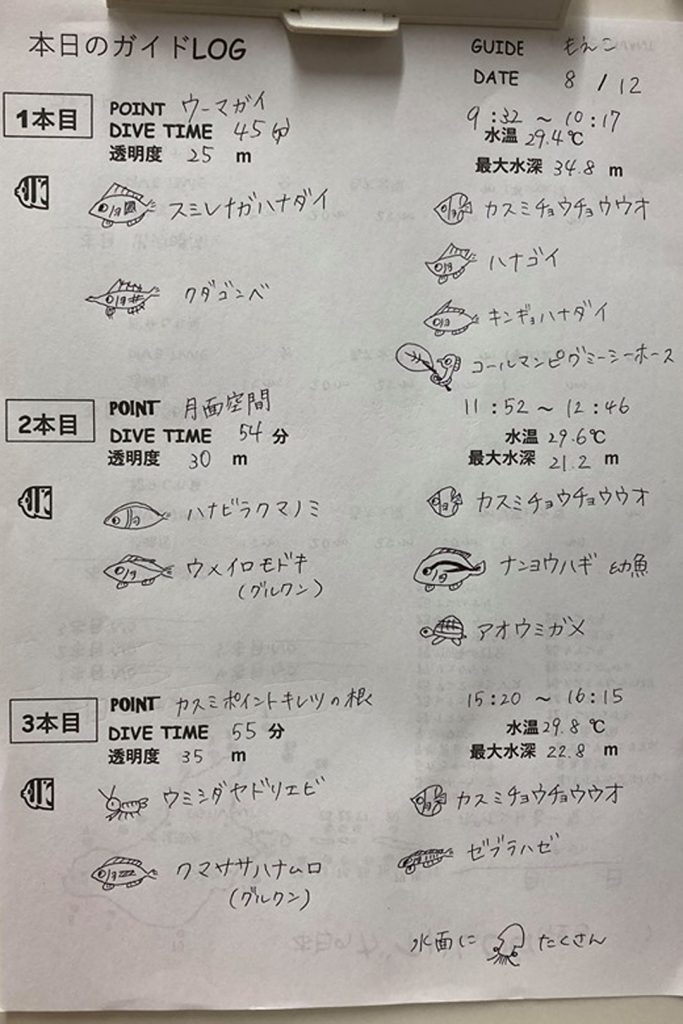 本日のガイドLOG
GUIDE もえこ
DATE 8 / 12
1本目
POINT ウーマガイ
DIVE TIME 45分
透明度 25 m
9:32 ~ 10:17
水温 29.4℃
最大水深 34.8 m
スミレナガハナダイ
クダゴンベ
カスミチョウチョウウオ
ハナゴイ
キンギョハナダイ
コールマンピグミーシーホース
2本目
POINT 月面空間
DIVE TIME 54 分
透明度 30 m
11:52 ~ 12:46
水温 29.6℃
最大水深 21.2 m
ハナビラクマノミ
ウメイロモドキ
(グルクン)
カスミチョウチョウウオ
ナンヨウハギ 幼魚
アオウミガメ
3本目
POINT カスミポイントキレツの根
DIVE TIME 55 分
透明度 35 m
15:20 ~ 16:15
水温 29.8℃
最大水深 22.8 m
ウミシダヤドリエビ
クマササハナムロ
(グルクン)
カスミチョウチョウウオ
ゼブラハゼ
水面に たくさん